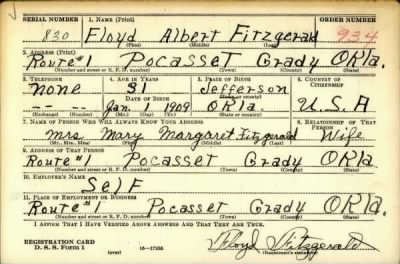 SERIAL NUMBER 1. NAME (Print) ORDER NUMBER
830 Floyd Albert Fitzgerald 934
(First) (Middle) (Last)
2. ADDRESS (Print)
Route #1 Pocasset Grady Okla.
(Number and street or R. F. D. number) (Town) (County) (State)
3. TELEPHONE 4. AGE IN YEARS 5. PLACE OF BIRTH 6. COUNTRY OF CITIZENSHIP
None 31 Jefferson
DATE OF BIRTH (Town or county)
-- -- Jan. 1 1909 Okla. U.S.A
(Exchange) (Number) (Mo.) (Day) (Yr.) (State or country)
7. NAME OF PERSON WHO WILL ALWAYS KNOW YOUR ADDRESS 8. RELATIONSHIP OF THAT PERSON
Mrs Mary Margaret Fitzgerald Wife
(Mr., Mrs., Miss) (First) (Middle) (Last)
9. ADDRESS OF THAT PERSON
Route #1 Pocasset Grady Okla
(Number and street or R. F. D. number) (Town) (County) (State)
10. EMPLOYER'S NAME
Self
11. PLACE OF EMPLOYMENT OR BUSINESS
Route #1 Pocasset Grady Okla.
(Number and street or R. F. D. number) (Town) (County) (State)
I AFFIRM THAT I HAVE VERIFIED ABOVE ANSWERS AND THAT THEY ARE TRUE.
REGISTRATION CARD
D. S. S. Form 1 (over) 16-17105 Floyd Fitzgerald
(Registrant's signature)